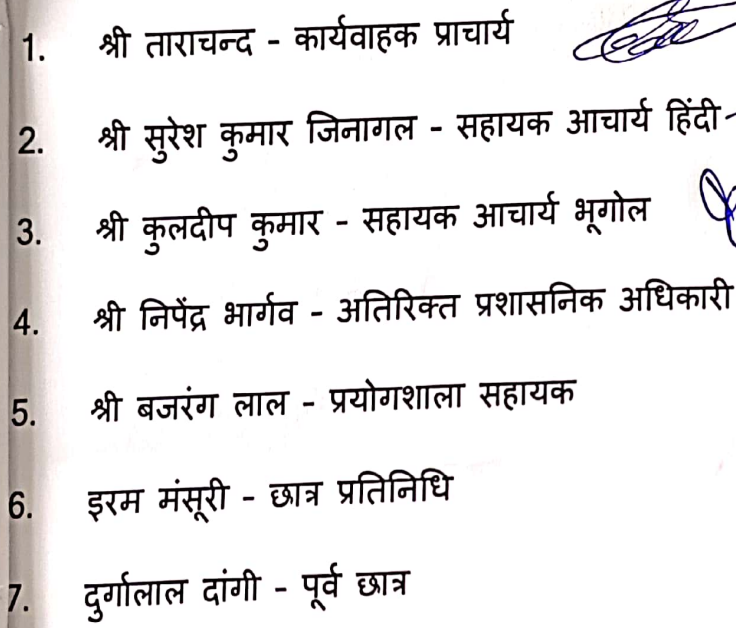 1. श्री ताराचन्द - कार्यवाहक प्राचार्य
2. श्री सुरेश कुमार जिनागल - सहायक आचार्य हिंदी
3. श्री कुलदीप कुमार - सहायक आचार्य भूगोल
4. श्री निपेंद्र भार्गव - अतिरिक्त प्रशासनिक अधिकारी
5. श्री बजरंग लाल - प्रयोगशाला सहायक
6. इरम मंसूरी - छात्र प्रतिनिधि
7. दुर्गालाल दांगी - पूर्व छात्र